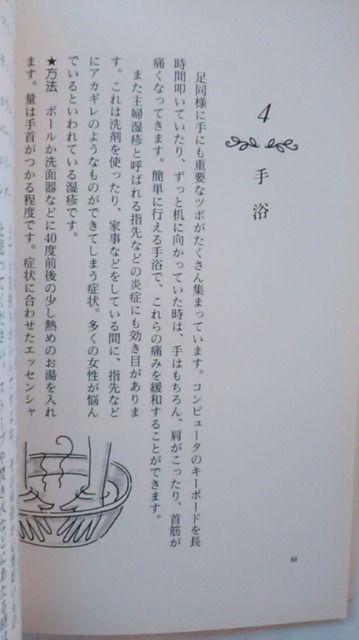 4
手浴
足同様に手にも重要なツボがたくさん集まっています。コンピュータのキーボードを長
時間叩いていたり、ずっと机に向かっていた時は、手はもちろん、肩がこったり、首筋が
痛くなってきます。簡単に行える手浴で、これらの痛みを緩和することができます。
また主婦湿疹と呼ばれる指先などの炎症にも効き目がありま
す。これは洗剤を使ったり、家事などをしている間に、指先など
にアカギレのようなものができてしまう症状。多くの女性が悩ん
でいるといわれている湿疹です。
★方法 ボールか洗面器などに40度前後の少し熱めのお湯を入れ
ます。量は手首がつかる程度です。症状に合わせたエッセンシャ